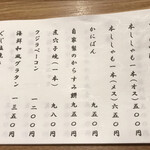 本ししゃも一本(オス) 五〇〇円
本ししゃも一本(メス) 六五〇円
かにぱん 九五〇円
自家製のからすみ餅 九五〇円
煮穴子焼(一本) 九八〇円
フジヨラベーコン 一二〇〇円
海鮮和風グラタン 一三五〇円